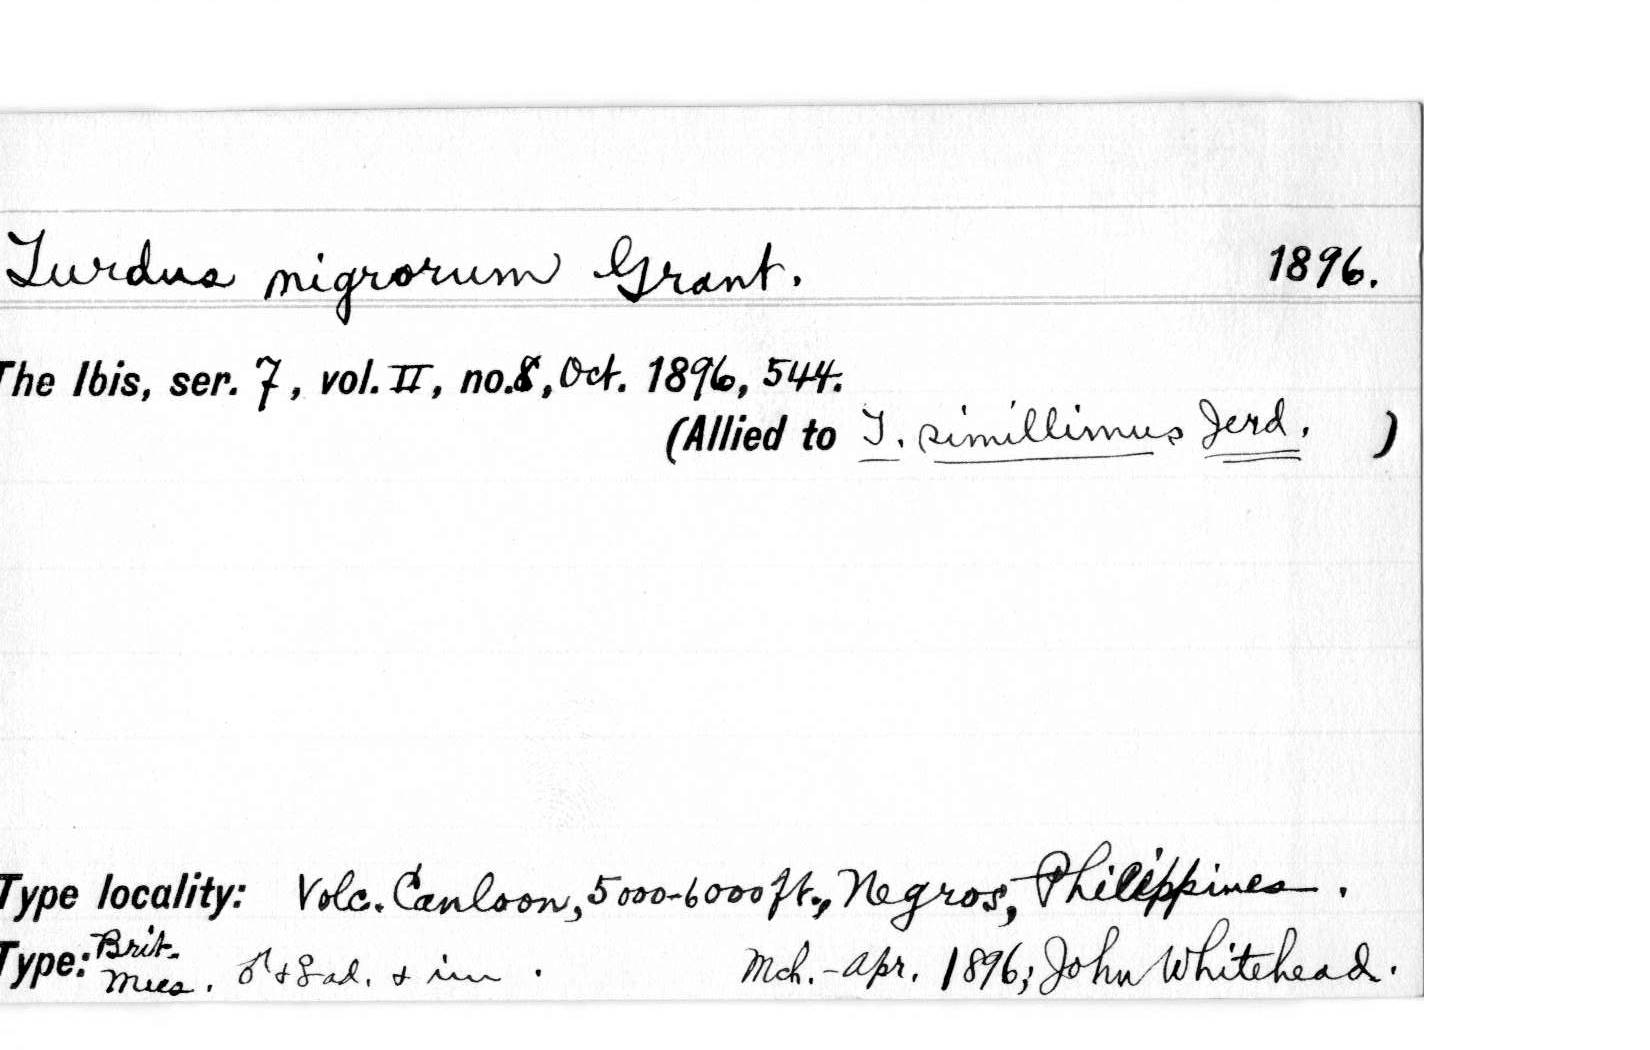 Turdus nigrorum Grant. 1896.
The Ibis, ser. 7, vol. II, no. 8, Oct. 1896, 544.
(Allied to T. simillimus Jerd. )
Type locality: Volc. Canloon, 5000-6000 ft., Negros, Philippines.
Type: Brit. Mus. ♂ + ♀ ad. + im. Mch.-Apr. 1896; John Whitehead.